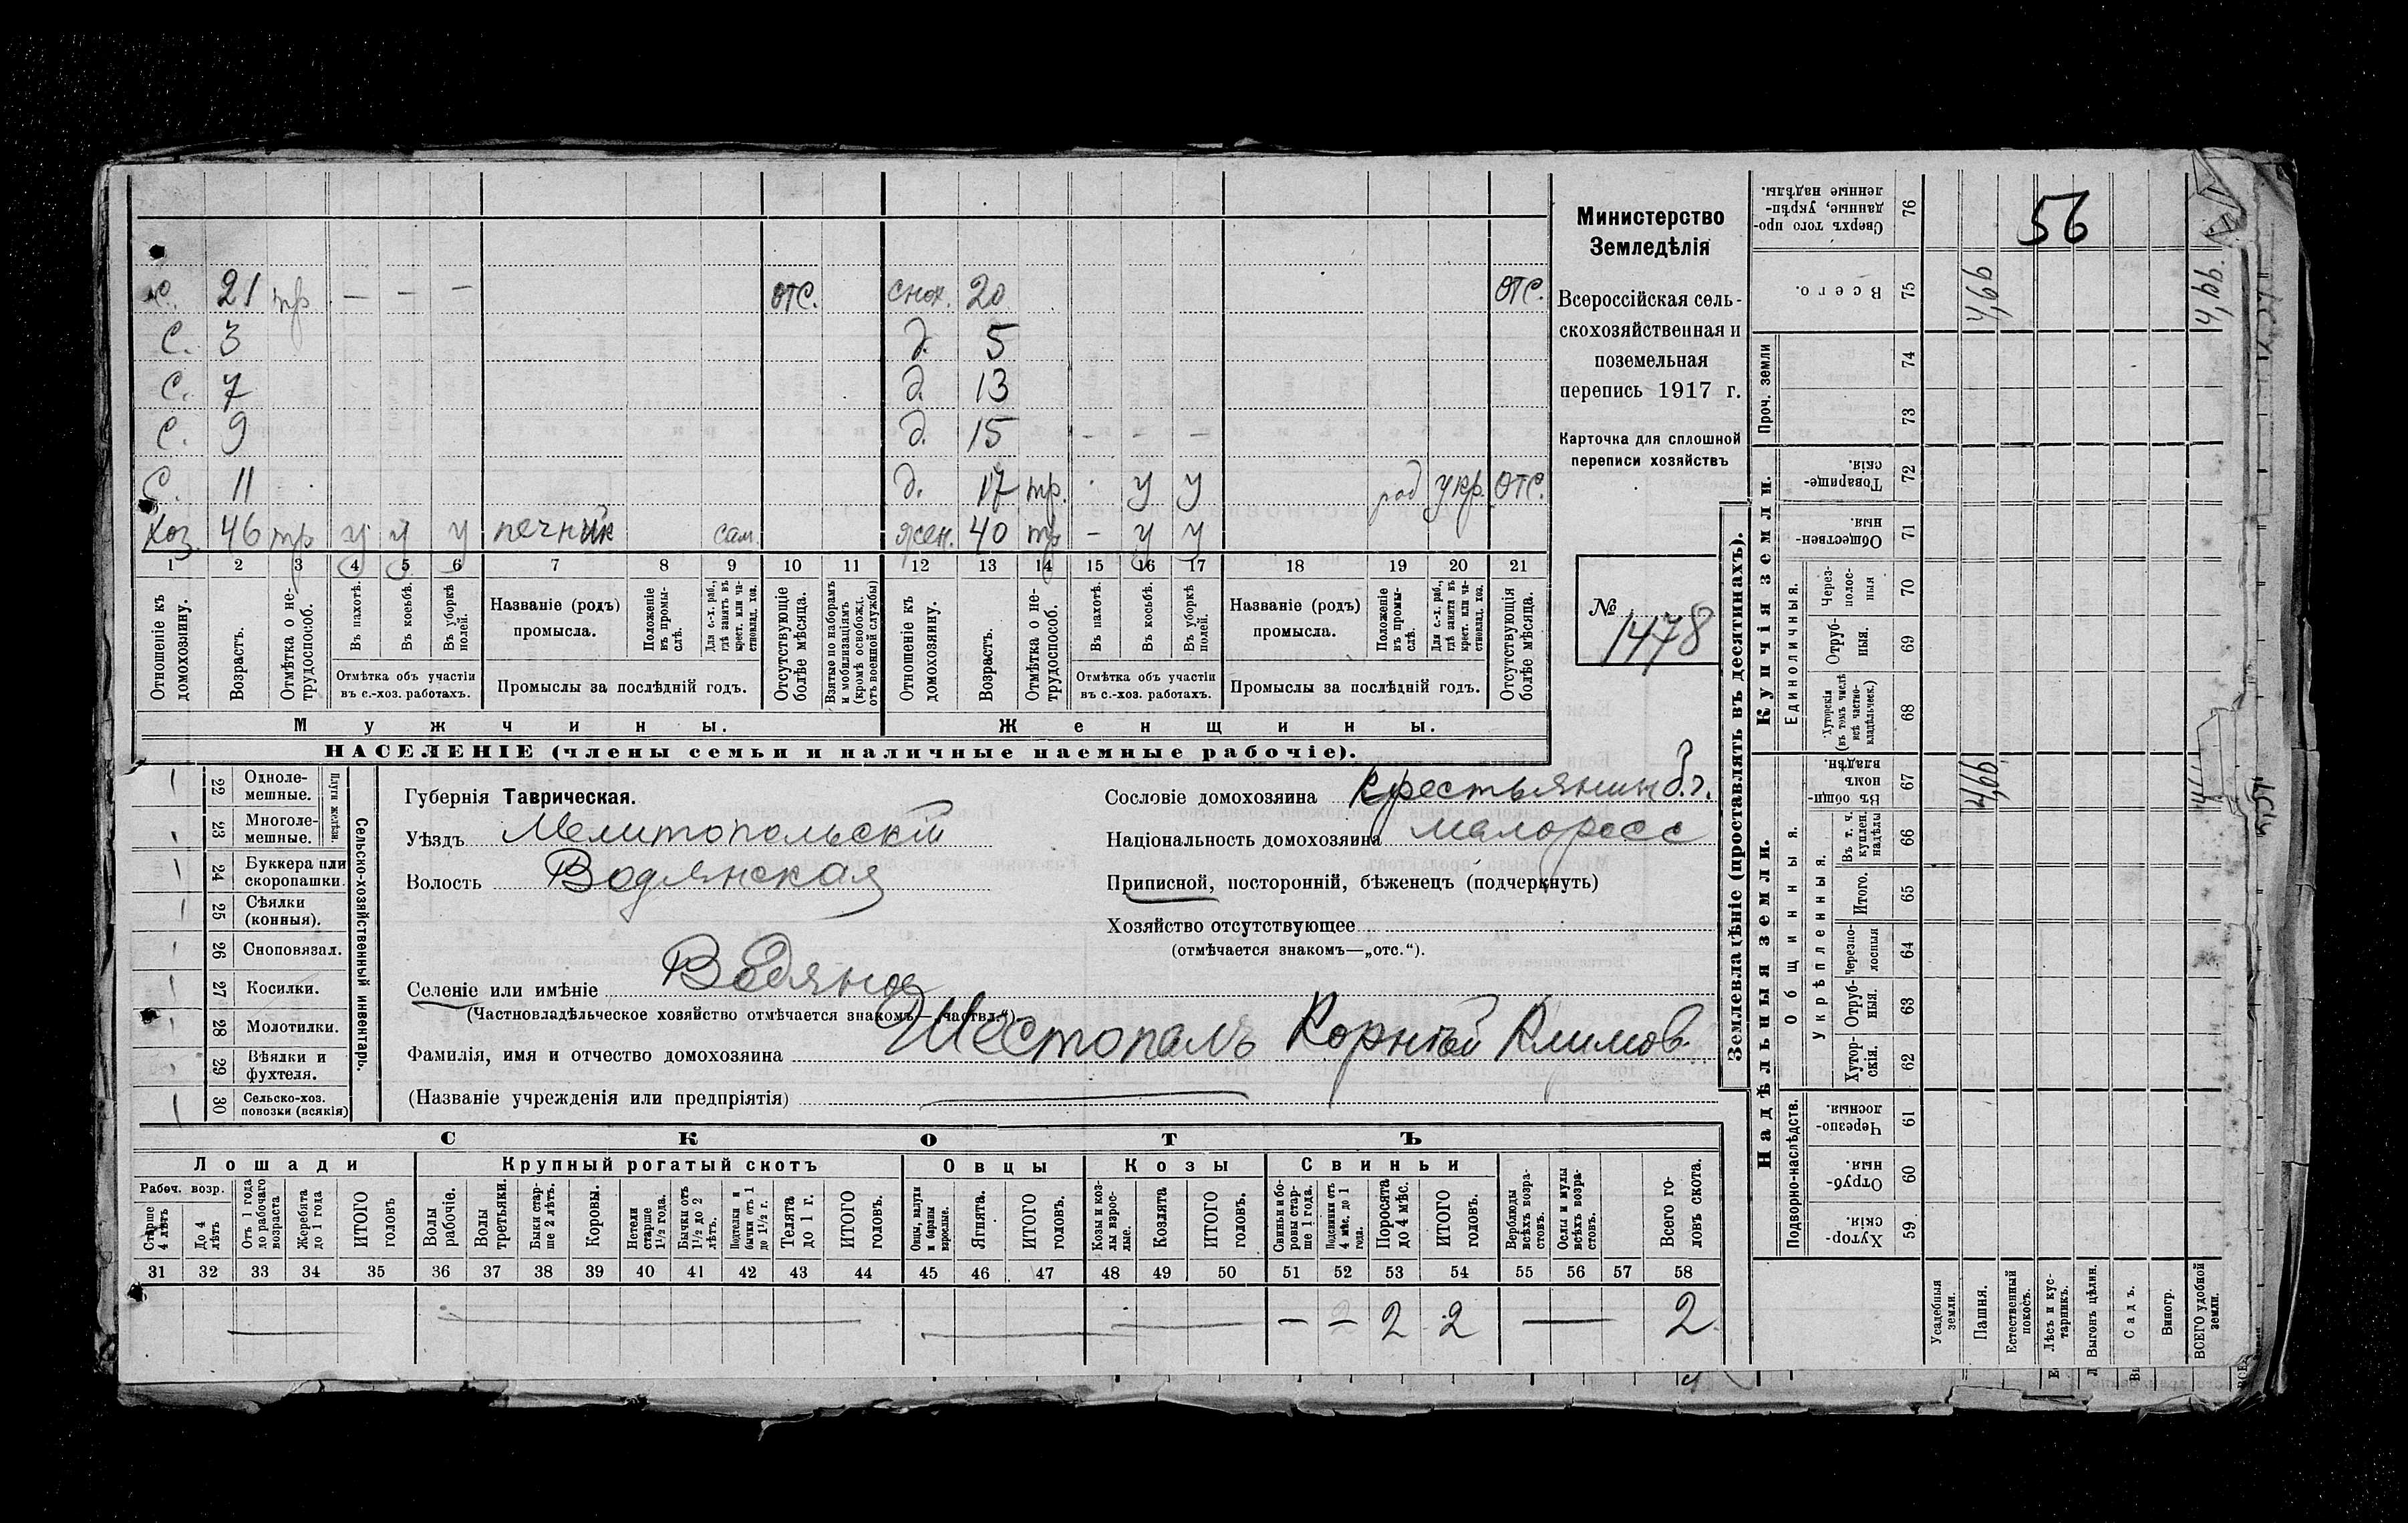 С. 21 тр. — — — отс. снох. 20 отс.
С. 3 д. 5
С. 7 д. 13
С. 9 д. 15 - - -
С. 11 д. 17 тр. у у год укр. отс.
Хоз. 46 тр у у у печник сам. жен. 40 тр — у у
1 2 3 4 5 6 7 8 9 10 11 12 13 14 15 16 17 18 19 20 21
Отношеніе къ домохозяину.
Возрастъ.
Отмѣтка о нетрудоспособ.
Въ пахотѣ.
Въ косьбѣ.
Въ уборкѣ полей.
Отмѣтка объ участіи въ с.-хоз. работахъ.
Названіе (родъ) промысла.
Положеніе въ промыслѣ.
Для с.-х. раб., гдѣ занятъ въ крест. или частновлад. хоз.
Промыслы за послѣдній годъ.
Отсутствующіе болѣе мѣсяца.
Взятые по наборамъ и мобилизаціямъ (кромѣ освобожд. отъ военной службы)
Отношеніе къ домохозяину.
Возрастъ.
Отмѣтка о нетрудоспособ.
Въ пахотѣ.
Въ косьбѣ.
Въ уборкѣ полей.
Отмѣтка объ участіи въ с.-хоз. работахъ.
Названіе (родъ) промысла.
Положеніе въ промыслѣ.
Для с.-х. раб., гдѣ занята въ крест. или частновлад. хоз.
Промыслы за послѣдній годъ.
Отсутствующія болѣе мѣсяца.
Мужчины.
Женщины.
НАСЕЛЕНІЕ (члены семьи и наличные наемные рабочіе).
Министерство
Земледѣлія
Всероссійская сель-
скохозяйственная и
поземельная
перепись 1917 г.
Карточка для сплошной
переписи хозяйствъ
№ 1478
Плуги желѣзн.
22 Одноле-
мешные.
23 Многоле-
мешные.
24 Буккера или
скоропашки.
25 Сѣялки
(конныя).
26 Сноповязал.
27 Косилки.
28 Молотилки.
29 Вѣялки и
фухтеля.
30 Сельско-хоз.
повозки (всякія)
Сельско-хозяйственный инвентарь.
Губернія Таврическая.
Уѣздъ Мелитопольскій
Волость Водянская
Селеніе или имѣніе Водяное
(Частновладѣльческое хозяйство отмѣчается знакомъ—„частвл.“)
Фамилія, имя и отчество домохозяина Шестопалъ Корній Климов.
(Названіе учрежденія или предпріятія)
Сословіе домохозяина Крестьянин
Національность домохозяина малоросс
Приписной, посторонній, бѣженецъ (подчеркнуть)
Хозяйство отсутствующее
(отмѣчается знакомъ—„отс.“).
СКОТЪ
Лошади
Крупный рогатый скотъ
Овцы
Козы
Свиньи
Рабоч. возр.
Старше 4 лѣтъ
До 4 лѣтъ
Отъ 1 года до рабочаго возраста
Жеребята до 1 года
ИТОГО головъ
Волы рабочіе.
Волы третьяки.
Быки старше 2 лѣтъ.
Коровы.
Нетели старше 1½ года.
Бычки отъ 1½ до 2 лѣтъ.
Подтелки и бычки отъ 1 до 1½ г.
Телята до 1 г.
ИТОГО головъ.
Овцы, валухи и бараны взрослые.
Ягнята.
ИТОГО головъ.
Козы и козлы взрослые.
Козлята
ИТОГО головъ.
Свиньи и боровы старше 1 года.
Подсвинки отъ 4 мѣс. до 1 года.
Поросята до 4 мѣс.
ИТОГО головъ.
Верблюды всѣхъ возрастовъ.
Ослы и мулы всѣхъ возрастовъ.
Всего головъ скота.
31 32 33 34 35 36 37 38 39 40 41 42 43 44 45 46 47 48 49 50 51 52 53 54 55 56 57 58
— — 2 2 — 2
Землевладѣніе (проставлять въ десятинахъ).
Купчія земли.
Надѣльныя земли.
Сверхъ того проданные, укрѣпленные надѣлы. 76
56
Всего. 75 4,66 4,66
Проч. земли 74
73
Товарищескія. 72
Общественныя. 71
Единоличныя.
Черезполосныя 70
Отрубныя. 69
Хуторскія (въ томъ числѣ всѣ частновладѣльческ.) 68
Общинныя.
Въ общинномъ владѣн. 67 4,66
Укрѣпленныя.
Въ т. ч. куплен. надѣлы 66
Итого. 65
Черезполосныя 64
Отрубныя. 63
Хуторскія. 62
Подворно-наслѣдств.
Черезполосныя 61
Отрубныя. 60
Хуторскія. 59
Усадебныя земли.
Пашня.
Естественный покосъ.
Лѣсъ и кустарникъ.
Выгонъ цѣлин.
Садъ.
Виногр.
ВСЕГО удобной земли.